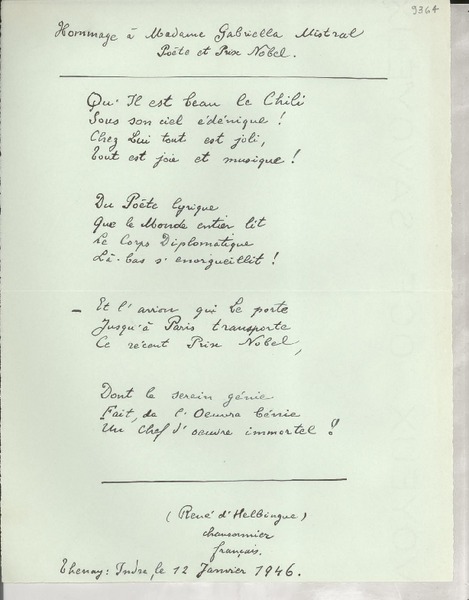 9364
Hommage à Madame Gabriella Mistral
Poëte et Prix Nobel.
Qu'Il est beau le Chili
Sous son ciel édénique !
Chez Lui tout est joli,
Tout est joie et musique !
Du Poëte lyrique
Que le Monde entier lit
Le Corps Diplomatique
Là-bas s'enorgueillit !
— Et l'avion qui Le porte
Jusqu'à Paris transporte
Ce récent Prix Nobel,
Dont le serein génie
Fait, de l'Oeuvre bénie
Un Chef d'oeuvre immortel !
(René d'Helbingue)
chansonnier
français.
Thenay: Indre, le 12 Janvier 1946.